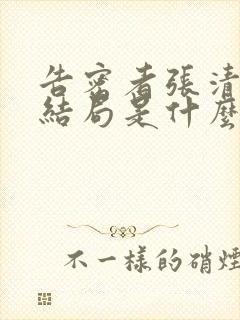 告密者張清
結局是什麼
不一樣的硝煙